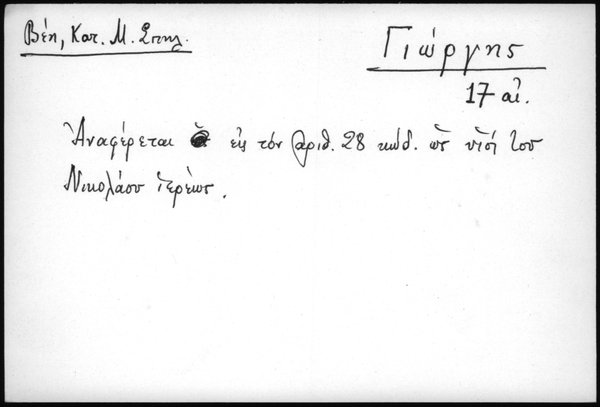 Βέη, Κατ. Μ. Σπηλ.
Γιώργης
17 αἰ.
Ἀναφέρεται εἰς τὸν ἀριθ. 28 κώδ. ὡς υἱὸς τοῦ
Νικολάου ἱερέως.